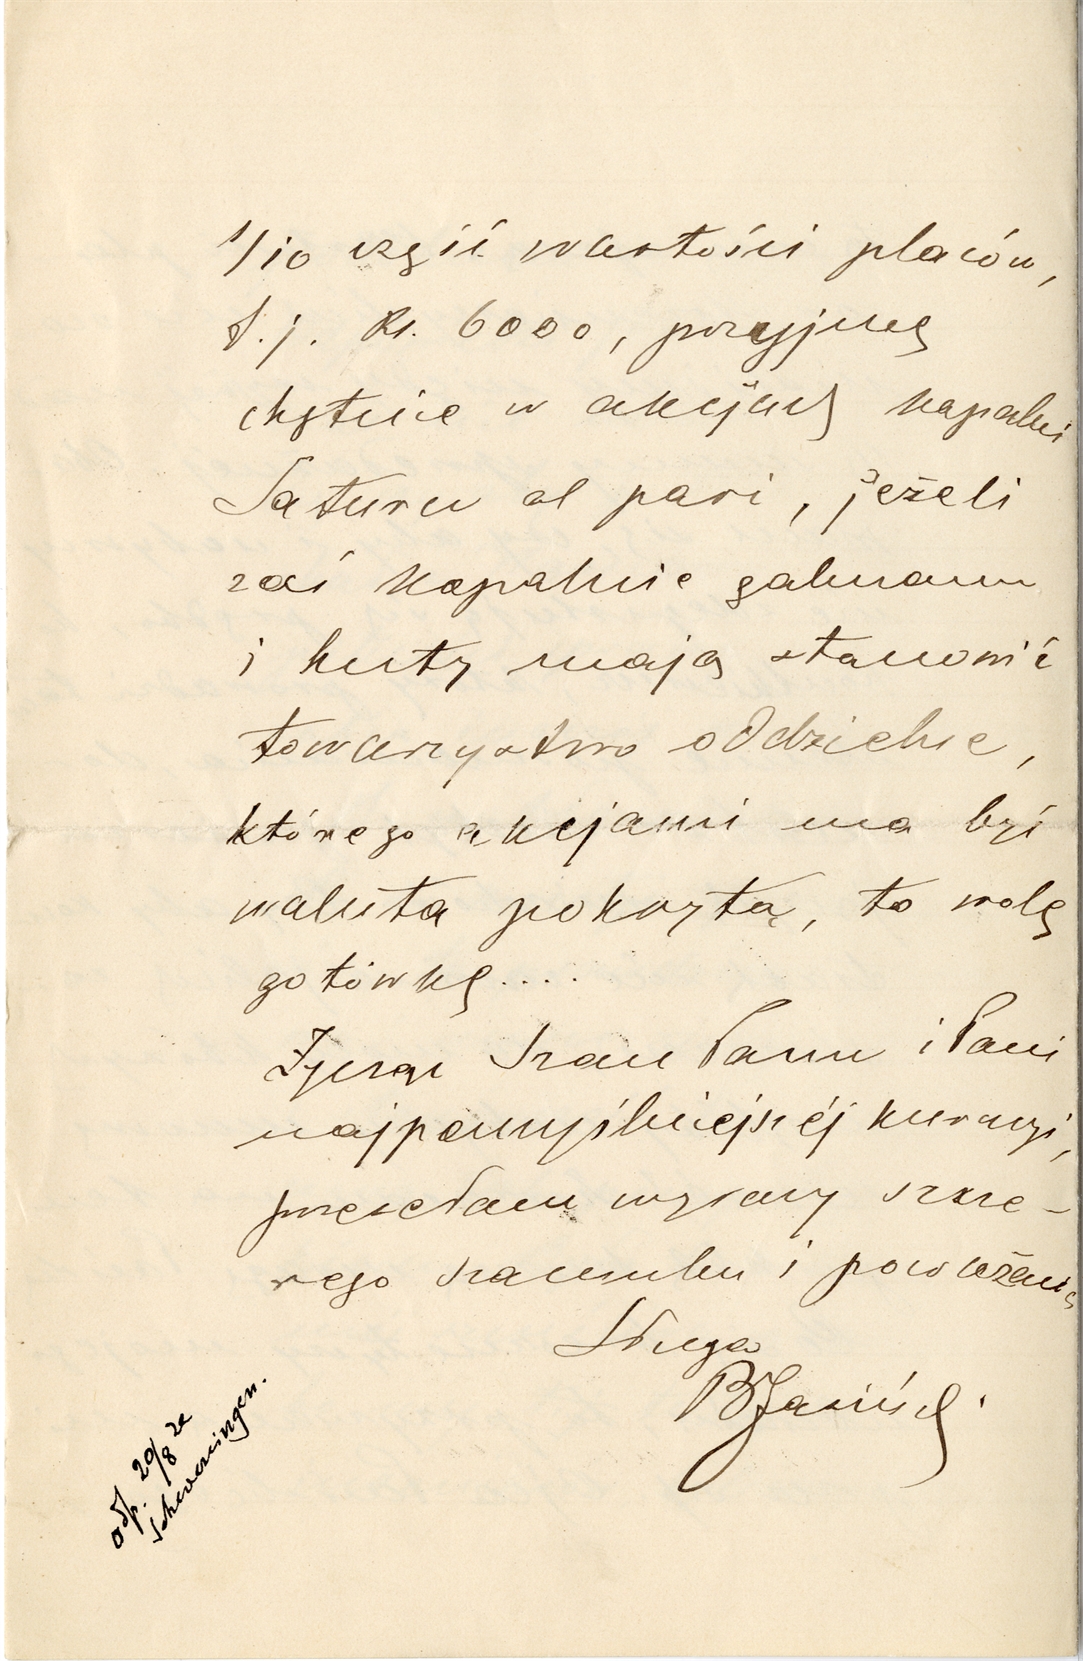 1/10 część wartości placów,
t. j. Rs. 6000, przyjmę
chętnie w akcjach kopalni
Saturn al pari, jeżeli
zaś kopalnie galmanu
i huty mają stanowić
towarzystwo oddzielne,
którego akcjami ma być
waluta pokrytą, to wolę
gotówkę....
Życząc Szan Panu i Pani
najpomyślniejszéj kuracyi,
przesełam wyrazy szcze-
rego szacunku i poważania
Sługa
BJasiński
odp. 20/8 ze
Scheveningen.